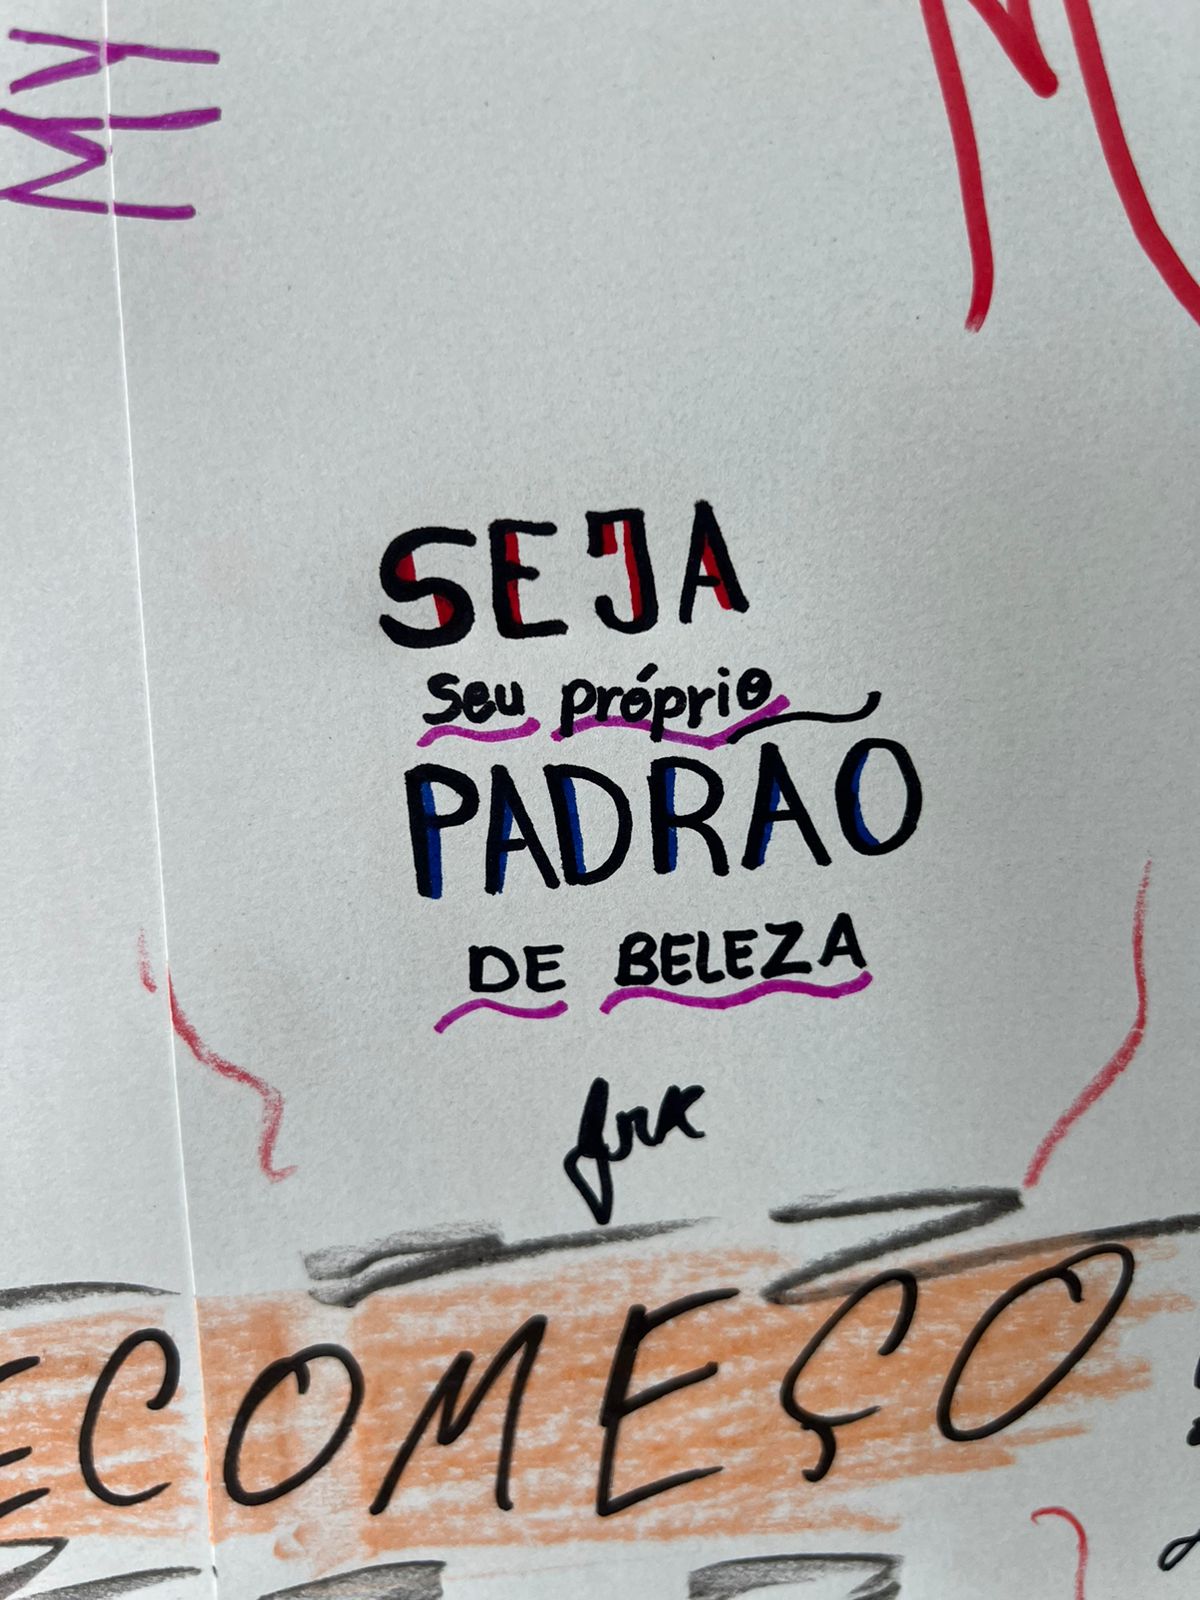 MY
M
SEJA
Seu próprio
PADRAO
DE BELEZA
ECOMEÇO